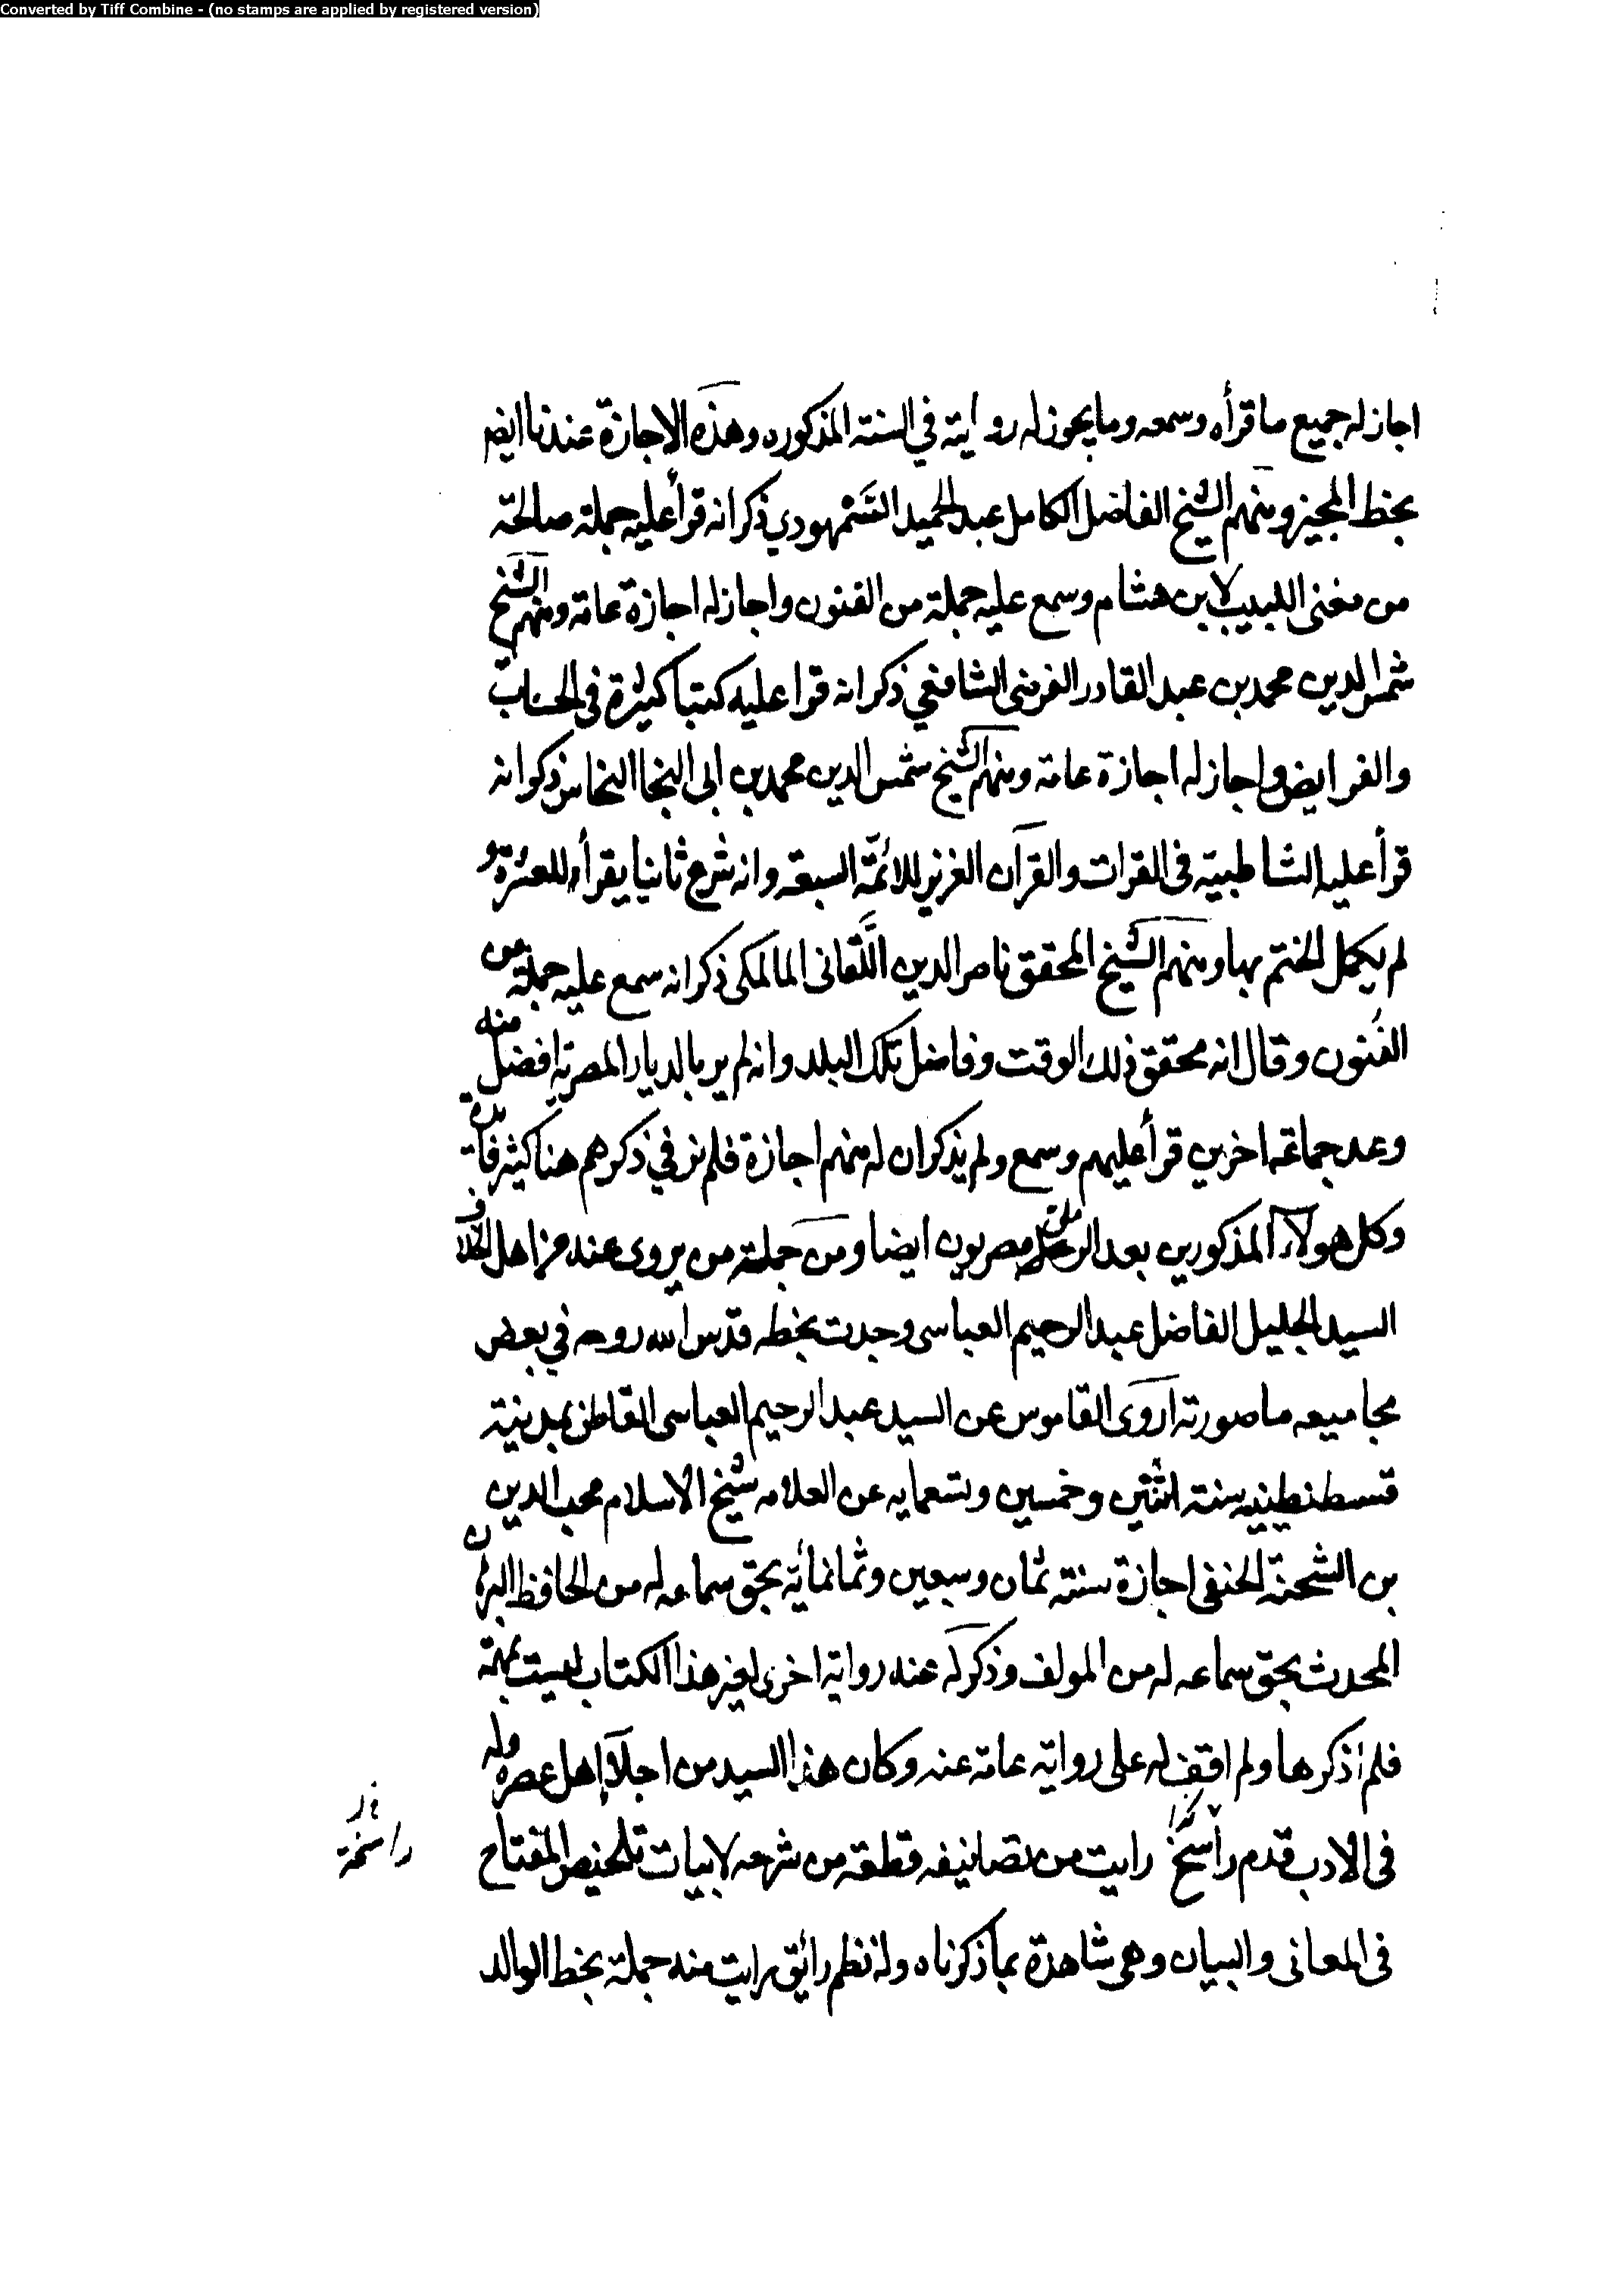 Converted by Tiff Combine - (no stamps are applied by registered version)
اجاز له جميع ما قرأه وسمعه وما يجوز له روايته في السنة المذكوره وهذه الاجازة عندنا ايضا
بخط المجيز ومنهم الشيخ الفاضل الكامل عبد الحميد السَّمْهودي ذكر انه قرأ عليه جملة صالحة
من مغنى اللبيب لابن هشام وسمع عليه جملة من الفنون واجاز له اجازة عامة ومنهم الشيخ
شمس الدين محمد بن عبد القادر الفرضى الشافعي ذكر انه قرا عليه كتبا كثيرة في الحساب
والفرايض واجاز له اجازة عامة ومنهم الشيخ شمس الدين محمد بن ابى النجا النحاس ذكر انه
قرأ عليه الشاطبية فى القرات والقرآن العزيز للائمّة السبعة وانه شرع ثانيا يقرأه للعشرة و
لم يكمل الختم بها ومنهم الشيخ المحقق ناصر الدين اللَّقانى المالكى ذكر انه سمع عليه جملة من
الفنون وقال انه محقق ذلك الوقت وفاضل تلك البلد وانه لم ير بالديار المصرية افضل منه
وعد جماعة اخرين قرأ عليهم وسمع ولم يذكر ان له منهم اجازة فلم نر في ذكرهم هنا كثير فايدة
وكل هولاء المذكورين بعد الرملى مصريون ايضا ومن جملة من يروى عنه من اهل الخلاف
السيد الجليل الفاضل عبد الرحيم العباسى وجدت بخطه قدّس الله روحه في بعض
مجاميعه ما صورته اروى القاموس عن السيد عبد الرحيم العباسى القاطن بمدينة
قسطنطينيه سنة اثنتين وخمسين وتسعمايه عن العلامه شيخ الاسلام محب الدين
بن الشحنة الحنفى اجازة سنة ثمان وسبعين وثمانمائة بحق سماعه له من الحافظ البرهان
المحدث بحق سماعه له من المولف وذكر له عنه رواية اخرى لغير هذا الكتاب ليست بمهمة
فلم اذكرها ولم اقف له على رواية عامة عنه وكان هذا السيد من اجلّاء اهل عصره وله
فى الادب قدم راسخ رايت من تصانيفه قطعة من شرحه لابيات تلخيص المفتاح
راسخة
فى المعانى والبيان وهى شاهدة بما ذكرناه وله نظم رائق رايت منه جملة بخط الوالد